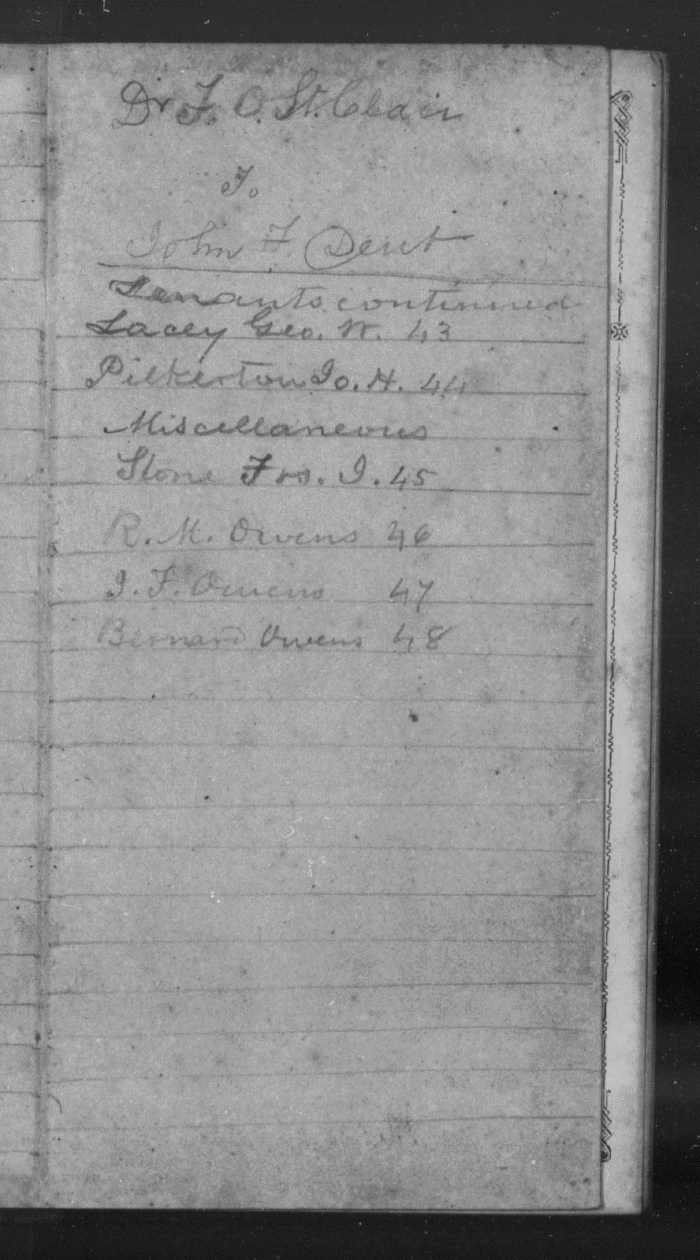 Dr F. O. St. Clair
To
John F Dent
Tenants continued
Lacey Geo. W. 43
Pilkerton Jo. H. 44
Miscellaneous
Stone Frs. I. 45
R. M. Owens 46
J. F. Owens 47
Bernard Owens 48